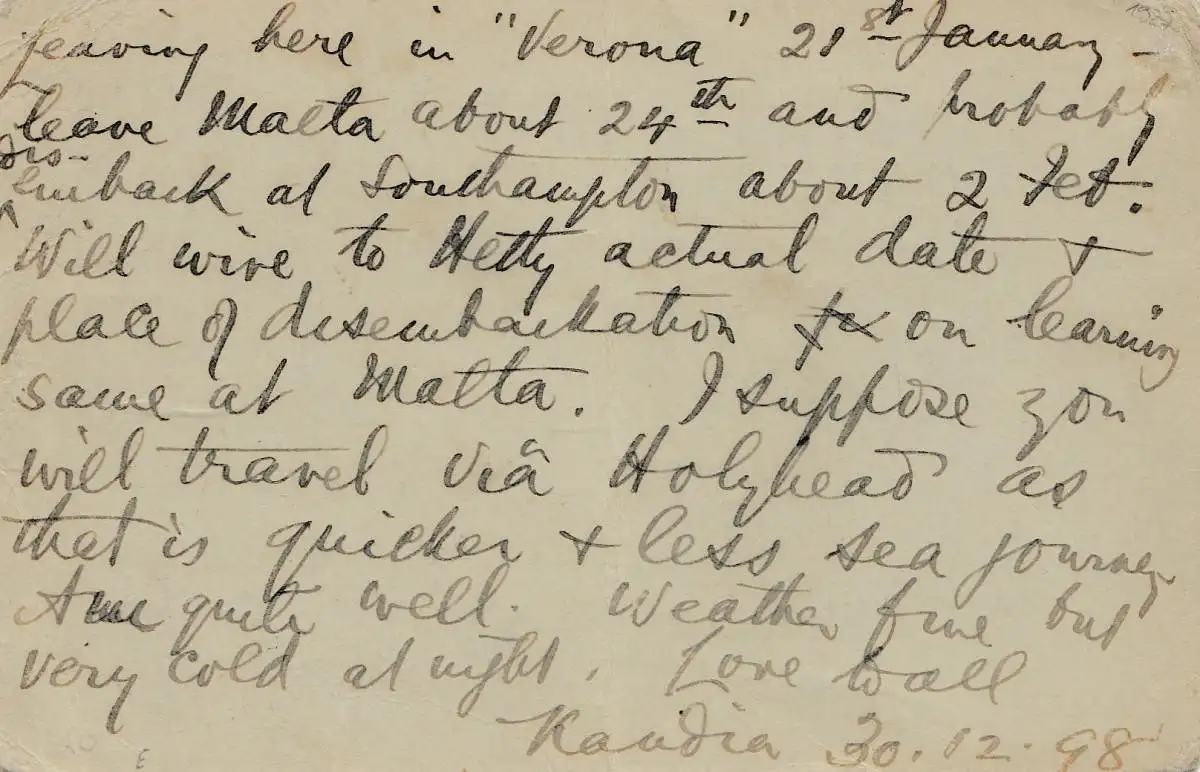 leaving here in "Verona" 21st January -
leave Malta about 24th and probably
dis-
embark at Southampton about 2 Feb.
Will wire to Hetty actual date +
place of disembarkation on learning
same at Malta. I suppose you
will travel viâ Holyhead as
that is quicker + less sea journey
Am quite well. Weather fine but
very cold at night. Love to all
Kandia 30.12.98